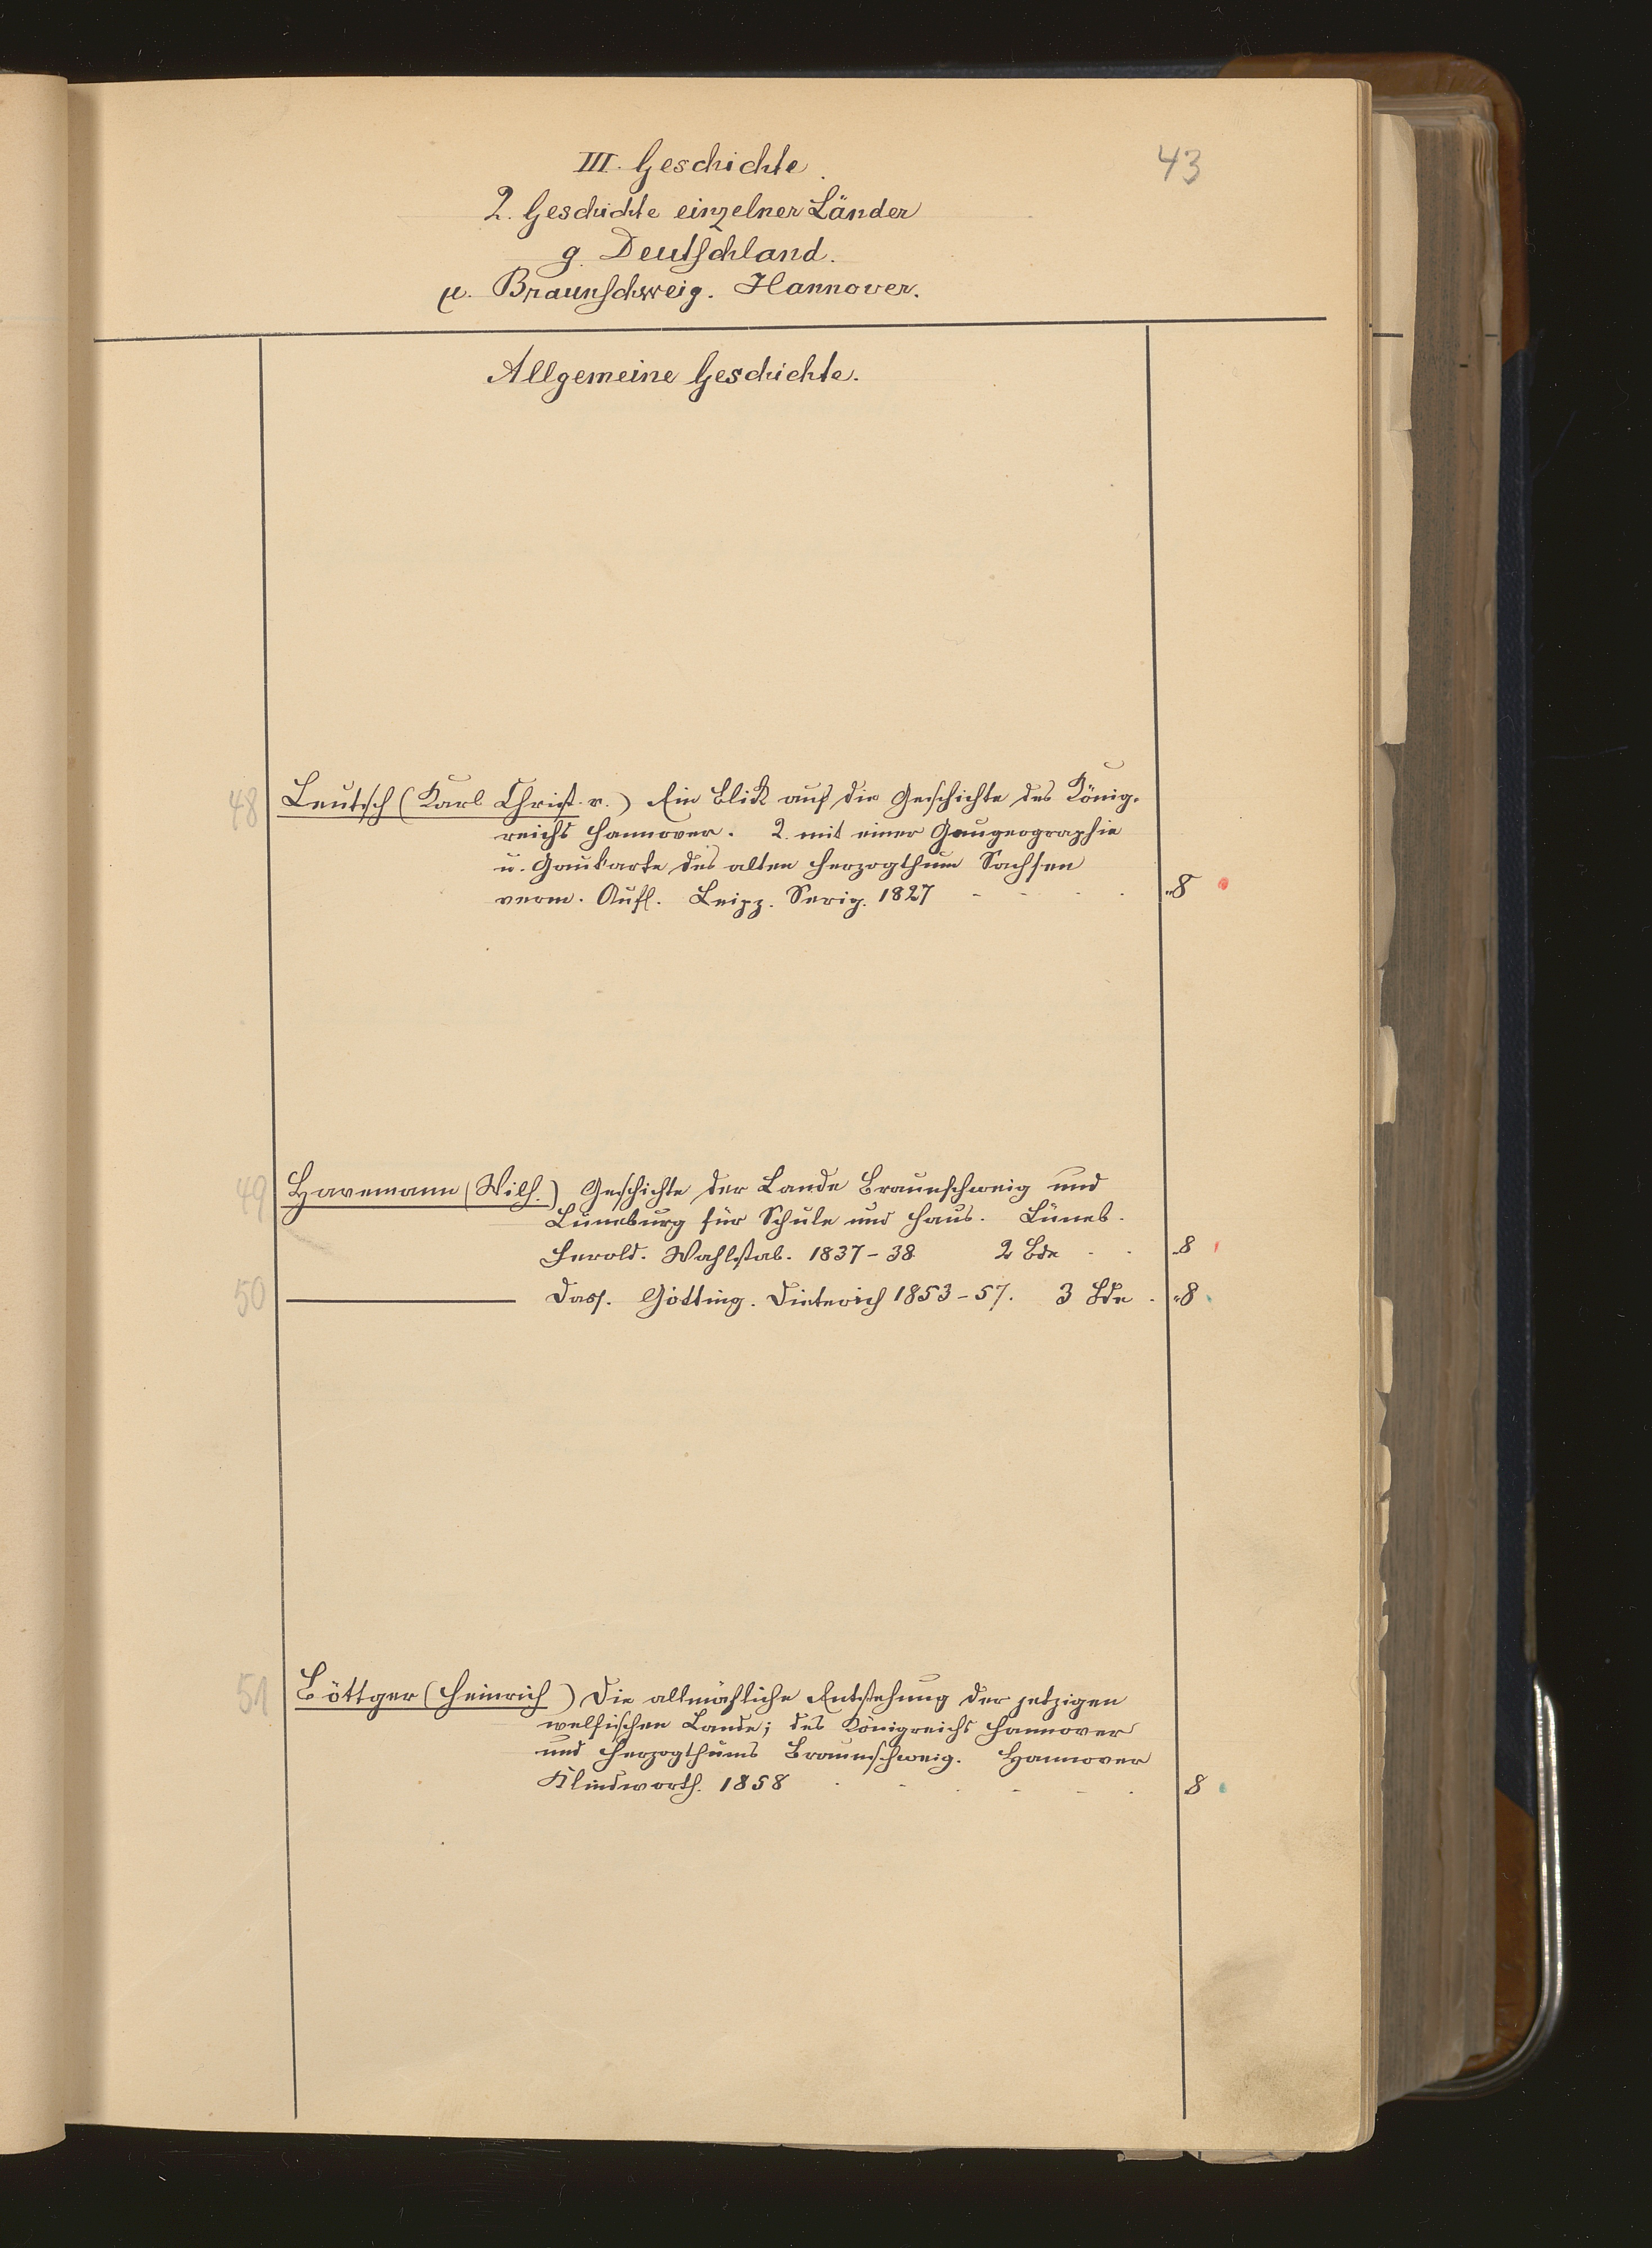 43
III. Geschichte.
2. Geschichte einzelner Länder
g. Deutschland.
μ. Braunschweig. Hannover.
Allgemeine Geschichte.
48 Leutsch (Karl Christ. v.) Ein Blick auf die Geschichte des König-
reichs Hannover. 2. mit einer Gaugeographie
u. Gaukarte des alten Herzogthum Sachsen
verm. Aufl. Leipz. Serig. 1827 - - - . 8
49 Havemann (Wilh.) Geschichte der Lande Braunschweig und
Lüneburg für Schule und Haus. Lüneb.
Herold. Wahlstab. 1837-38 2 Bde - . 8
50 ——— Dass. Götting. Dieterich 1853-57. 3 Bde . 8
51 Böttger (Heinrich) Die allmähliche Entstehung der jetzigen
welfischen Lande; des Königreichs Hannover
und Herzogthums Braunschweig. Hannover
Klindworth. 1858 . - . - - . 8